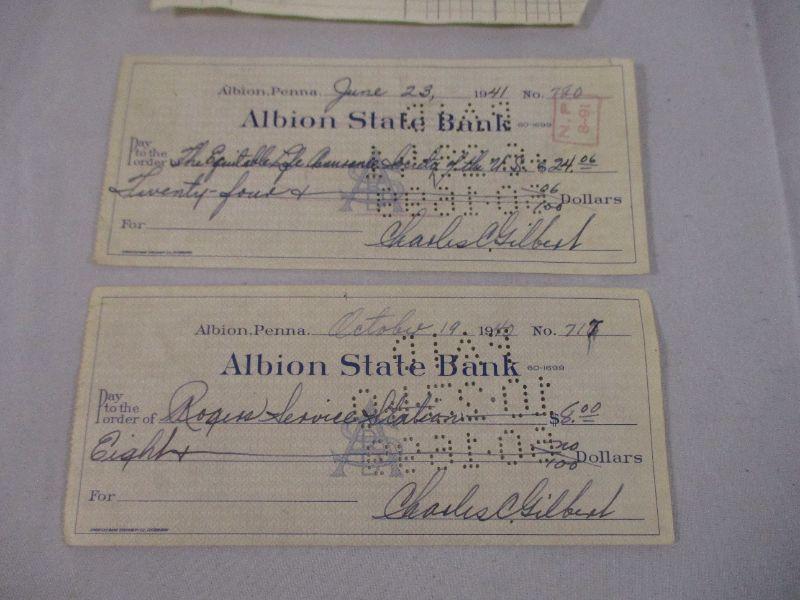 Albion, Penna. June 23, 1941 No. 780
Albion State Bank 60-1699
N.P. 8-91
Pay to the order The Equitable Life Assurance Society of the U.S. $24.06
Twenty-four x 06/100 Dollars
For Charles C. Gilbert
Albion, Penna. October 19 1940 No. 717
Albion State Bank 60-1699
Pay to the order of Rogers Service Station $8.00
Eight x no/100 Dollars
For Charles C. Gilbert